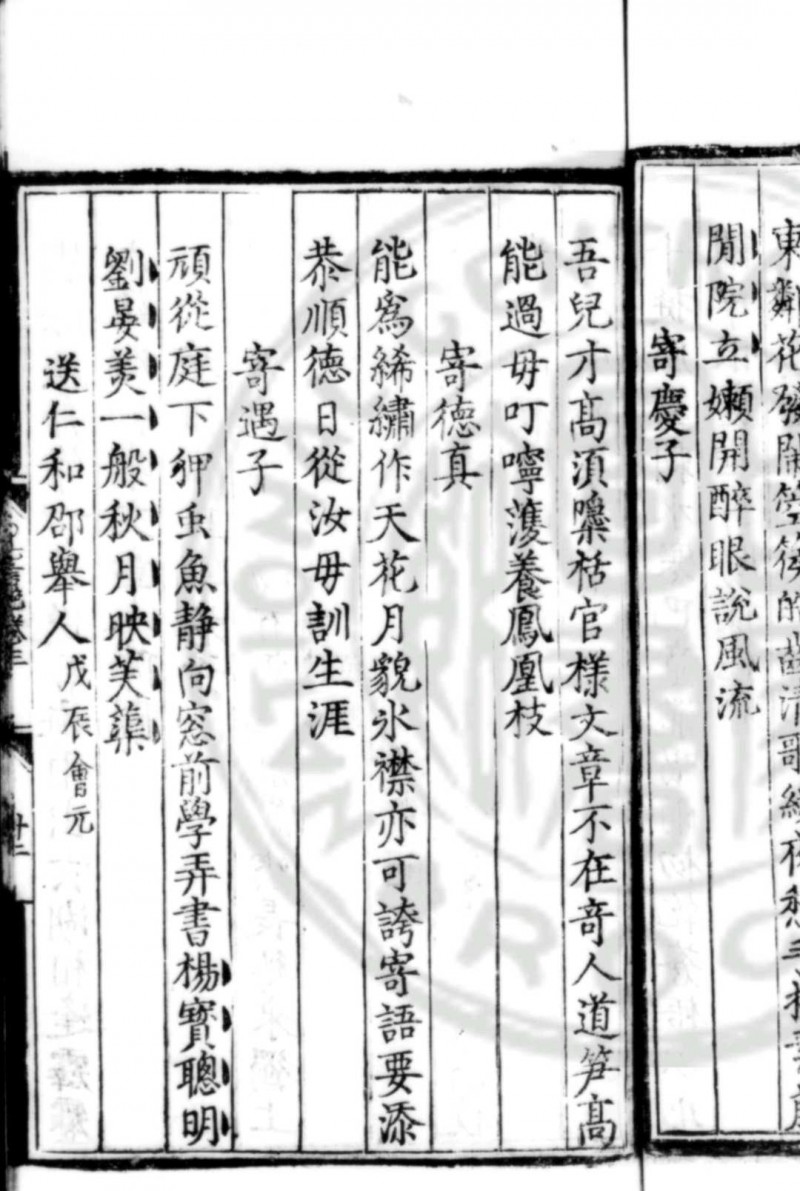 東鄰花發開
閒院立嬾開醉眼說風流
寄慶子
吾兒才髙須櫽栝官樣文章不在竒人道笋髙
能過毋叮嚀䕶養鳳凰枝
寄德真
能爲絺繡作天花月貌氷襟亦可誇寄語要添
恭順德日從汝毋訓生涯
寄遇子
頑從庭下狎虫魚静向窓前學弄書楊寶聰明
劉晏羙一般秋月映芙蕖
送仁和邵舉人戊辰會元